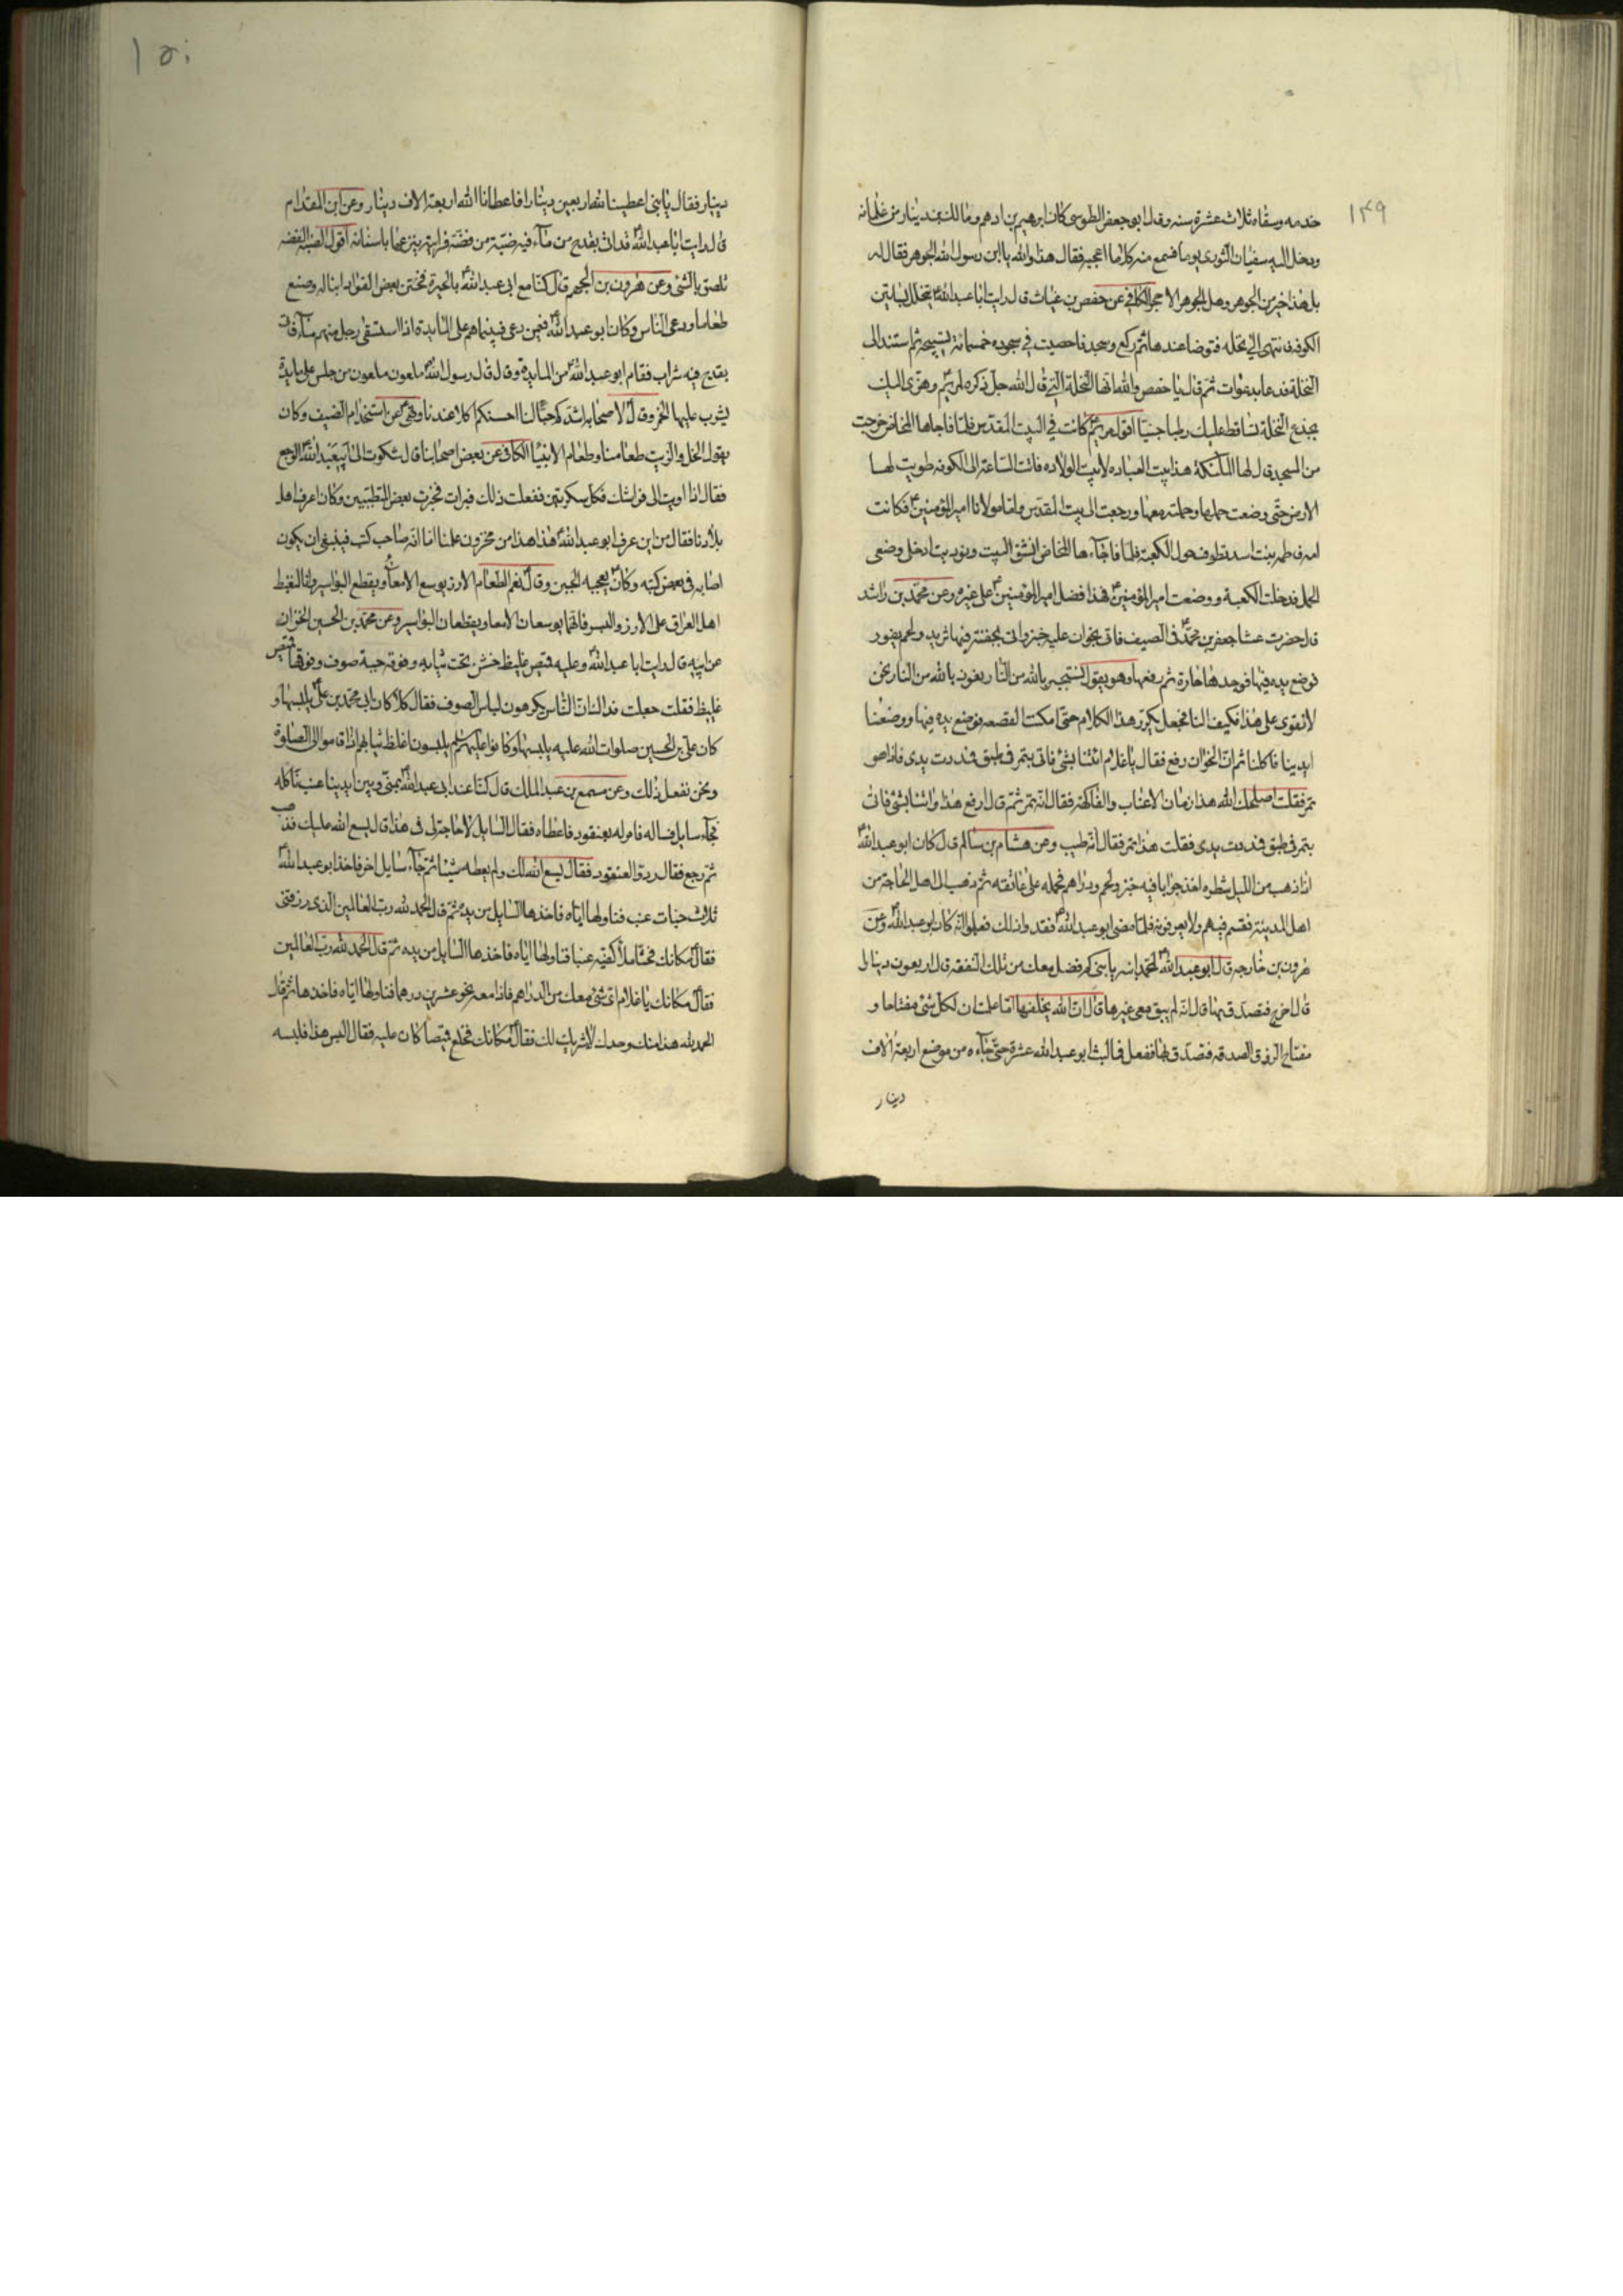 ١٤٩
خدمه وسقاه ثلاث عشرة سنه وقال ابو جعفر الطوسى كان ابرهيم بن ادهم ومالك بن دينار من غلمانه
ودخل اليه سفيان الثورى يوما فسمع منه كلاما اعجبه فقال هذا والله يا ابن رسول الله الجوهر فقال له
بل هذا خير من الجوهر وهل الجوهر الا حجر الكافى عن حفص بن غياث قال رايت ابا عبد الله ع يتخلل بساتين
الكوفه فانتهى الى نخله فتوضا عندها ثم ركع وسجد فاحصيت في سجوده خمسمائة تسبيحة ثم استند الى
النخلة فدعا بدعوات ثم قال يا حفص والله انها النخلة التي قال الله جل ذكره لمريم وهزى اليك
بجذع النخلة تساقط عليك رطبا جنيا اقول مريم ع كانت في البيت المقدس فلما فاجاها المخاض خرجت
من المسجد قال لها الملئكة هذا بيت العباده لا بيت الولاده فاتت الساعة الى الكوفه طويت لها
الارض حتى وضعت حملها وحملته معها ورجعت الى بيت المقدس واما مولانا امير المؤمنين ع فكانت
امه فاطمه بنت اسد تطوف حول الكعبة فلما فاجاءها المخاض انشق البيت ونوديت ادخلى وضعى
الحمل فدخلت الكعبة ووضعت امير المؤمنين ع فهذا فضل امير المؤمنين ع على غيره وعن محمد بن راشد
قال حضرت عشا جعفر بن محمد ع فى الصيف فاتى بخوان عليه خبز واتى بجفنة فيها ثريد ولحم يفور
فوضع يده فيها فوجدها حارة ثم رفعها وهو يقول نستجير بالله من النار نعوذ بالله من النار نحن
لا نقوى على هذا فكيف النار فجعل يكرر هذا الكلام حتى امكنت القصعه فوضع يده فيها ووضعنا
ايدينا فاكلنا ثم ان الخوان رفع فقال يا غلام ائتنا بشئ فاتى بتمر فى طبق فمددت يدى فاذا هو
تمر فقلت اصلحك الله هذا زمان الاعناب والفاكهة فقال انه تمر ثم قال ارفع هذا وائتنا بشئ فاتى
بتمر فى طبق فمددت يدى فقلت هذا تمر فقال انه طيب وعن هشام بن سالم قال كان ابو عبد الله ع
اذا ذهب من الليل شطره اخذ جرابا فيه خبز ولحم ودراهم فحمله على عاتقه ثم ذهب الى اهل الحاجة من
اهل المدينة فقسم فيهم ولا يعرفونه فلما مضى ابو عبد الله ع فقدوا ذلك فعلموا انه كان ابو عبد الله ع وعن
هرون بن خارجه قال ابو عبد الله ع لمحمد ابنه يا بنى كم فضل معك من تلك النفقه قال اربعون دينارا
قال اخرج فتصدق بها قال انه لم يبق معى غيرها قال ان الله يخلفها اما علمت ان لكل شئ مفتاحا و
مفتاح الرزق الصدقه فتصدق بها ففعل فما لبث ابو عبد الله عشرة حتى جاءه من موضع اربعة الاف
دينار
١٥٠
دينار فقال يا بنى اعطينا لله اربعين دينارا فاعطانا الله اربعة الاف دينار وعن ابن المقدام
قال رايت ابا عبد الله ع قد اتى بقدح من ماء فيه ضبة من فضة فرايته ينزعها باسنانه اقول الضبه الفضه
تلصق بالشئ وعن هرون بن الجهم قال كنا مع ابى عبد الله ع بالحيرة فختن بعض القواد ابنا له وصنع
طعاما ودعى الناس وكان ابو عبد الله ع فيمن دعى فبينما هم على المايدة اذا استسقى رجل منهم ماء فاتى
بقدح فيه شراب فقام ابو عبد الله ع من المايدة وقال قال رسول الله ص ملعون ملعون من جلس على مايدة
يشرب عليها الخمر وقال ع لاصحابه اشدكم حبا لنا احسنكم اكلا عندنا ونهى ع عن استخدام الضيف وكان
يقول الخل والزيت طعامنا وطعام الانبيا الكافى عن بعض اصحابنا قال شكوت الى ابيعبد الله ع الوجع
فقال اذا اويت الى فراشك فكل سكرتين ففعلت ذلك فبرات فخبرت بعض المتطببين وكان اعرف اهل
بلادنا فقال من اين عرف ابو عبد الله ع هذا هذا من مخزون علمنا اما انه صاحب كتب فينبغى ان يكون
اصابه فى بعض كتبه وكان ع يعجبه الجبن وقال ع نعم الطعام الارز يوسع الامعاء ويقطع البواسير وانا لنغبط
اهل العراق على الارز والبسر فانهما يوسعان الامعا ويقطعان البواسير وعن محمد بن الحسين الخزاز
عن ابيه قال رايت ابا عبد الله ع وعليه قميص غليظ خشن تحت ثيابه وفوقه جبة صوف وفوقها قميص
غليظ فقلت جعلت فداك ان الناس يكرهون لباس الصوف فقال كلا كان ابى محمد بن على ع يلبسها و
كان على بن الحسين صلوات الله عليه يلبسها وكانوا عليهم السلم يلبسون اغلظ ثيابهم اذا قاموا الى الصلوة
ونحن نفعل ذلك وعن مسمع بن عبد الملك قال كنا عند ابى عبد الله ع بمنى وبين ايدينا عنب ناكله
فجاء سايل فساله فامر له بعنقود فاعطاه فقال السايل لا حاجة لى فى هذا قال يسع الله عليك فذهب
ثم رجع فقال ردوا العنقود فقال يسع الله لك ولم يعطه شيئا ثم جاء سايل اخر فاخذ ابو عبد الله ع
ثلاث حبات عنب فناولها اياه فاخذها السايل من يده ثم قال الحمد لله رب العالمين الذى رزقنى
فقال ع مكانك فحثا ملأ كفيه عنبا فناولها اياه فاخذها السايل من يده ثم قال الحمد لله رب العالمين
فقال ع مكانك يا غلام اى شئ معك من الدراهم فاذا معه نحو عشرين درهما فناولها اياه فاخذها ثم قال
الحمد لله هذا منك وحدك لا شريك لك فقال ع مكانك فخلع قميصا كان عليه فقال البس هذا فلبسه